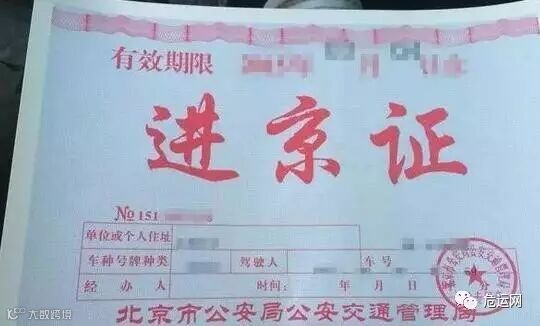 有效期限 年 月
进京证
№ 151
单位或个人住址
车种号牌种类 驾驶人 车号
经办人 时间： 年 月 日 时 分
北京市公安局公安交通管理局
大数跨境
危运网